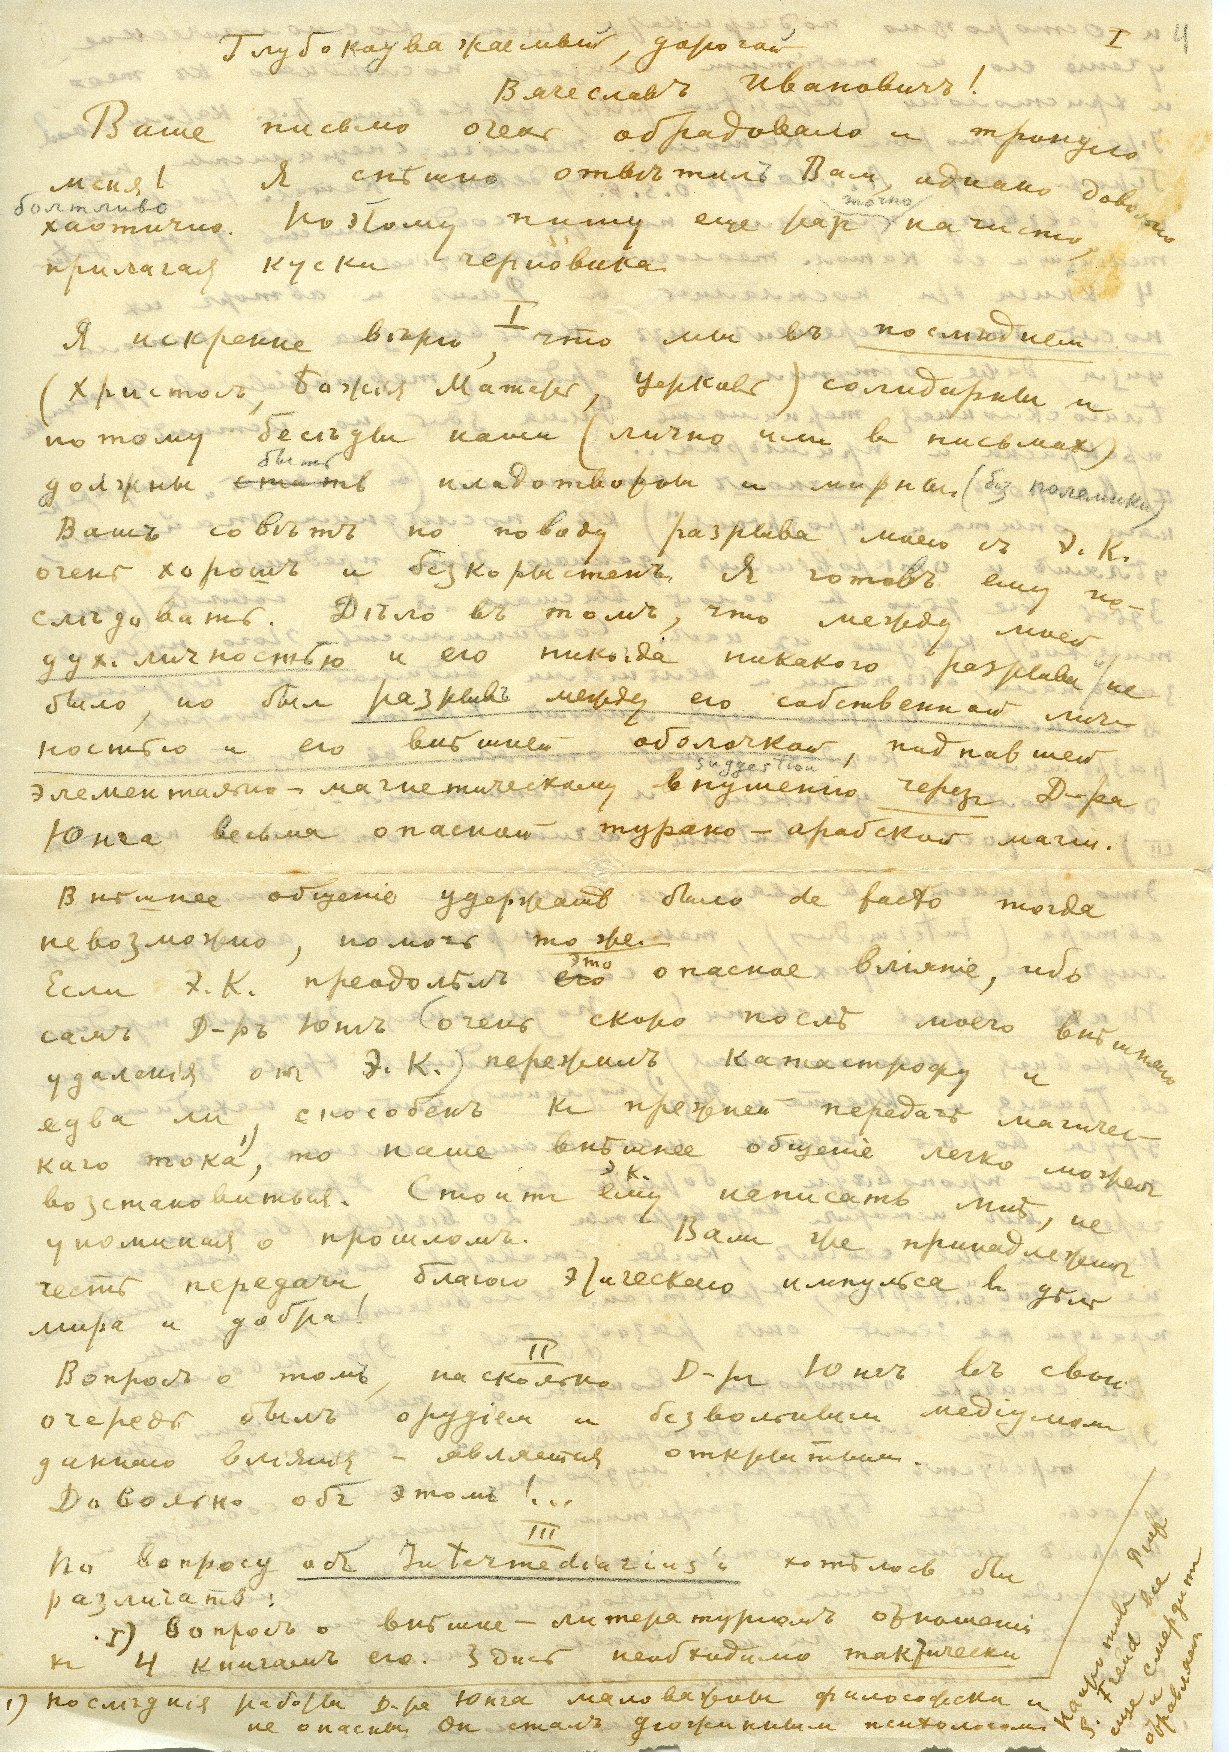 I 4
Глубокоуважаемый, дорогой
Вячеславъ Ивановичъ!
Ваше письмо очень обрадовало и тронуло
меня! Я спѣшно отвѣтилъ Вам, однако довольно
болтливо
хаотично. Поэтому пишу еще раз начисто,
точно
прилагая куски черновика.
I
Я искренне вѣрю, что мы въ последнем
(Христосъ, Божия Матерь, Церковь) солидарны и
потому бесѣды наши (лично или в письмах)
быть
должны стать плодотворны и мирны. (без полемики)
Вашъ совѣтъ по поводу разрыва моего съ Э. К.
очень хорошъ и безкорыстенъ. Я готовъ ему по-
слѣдовать. Дѣло въ томъ, что между моей
дух. личностью и его никогда никакого разрыва не
было, но был разрывъ между его собственной лич-
ностью и его внѣшней оболочкой, подпавшей
suggestion
элементарно-магнетическому внушенію через Д-ра
Юнга весьма опасной турано-арабской магіи.
Внѣшнее общеніе удержать было de facto тогда
невозможно, помочь тоже.
это
Если Э. К. преодолѣлъ его опасное вліяніе, ибо
самъ Д-ръ Юнгъ (очень скоро послѣ моего внѣшняго
удаленія от Э. К.) пережилъ катастрофу и
едва ли способенъ к прежней передачѣ магичес-
каго тока 1), то наше внѣшнее общеніе легко может
возстановиться. Стоитъ ему написать мнѣ, не
Э. К.
упоминая о прошломъ. Вам же принадлежит
честь передачи благого этического импульса в дѣлѣ
мира и добра!
II
Вопросъ о томъ, насколько Д-ръ Юнгъ въ свою
очередь былъ орудіем и безвольным медіумом
даннаго вліянія - является открытым.
Довольно объ этомъ!...
III
По вопросу объ Intermediarius'ѣ хотѣлось бы
различать:
I) Вопросъ о внѣшне-литературномъ отношеніи
к 4 книгамъ его. Здѣсь необходимо тактически
1) послѣднія работы Д-ра Юнга маловажны философски и
не опасны. Он сталъ дюжинным психологом.
Напротивъ
S. Freud все
еще смердит
и отравляет